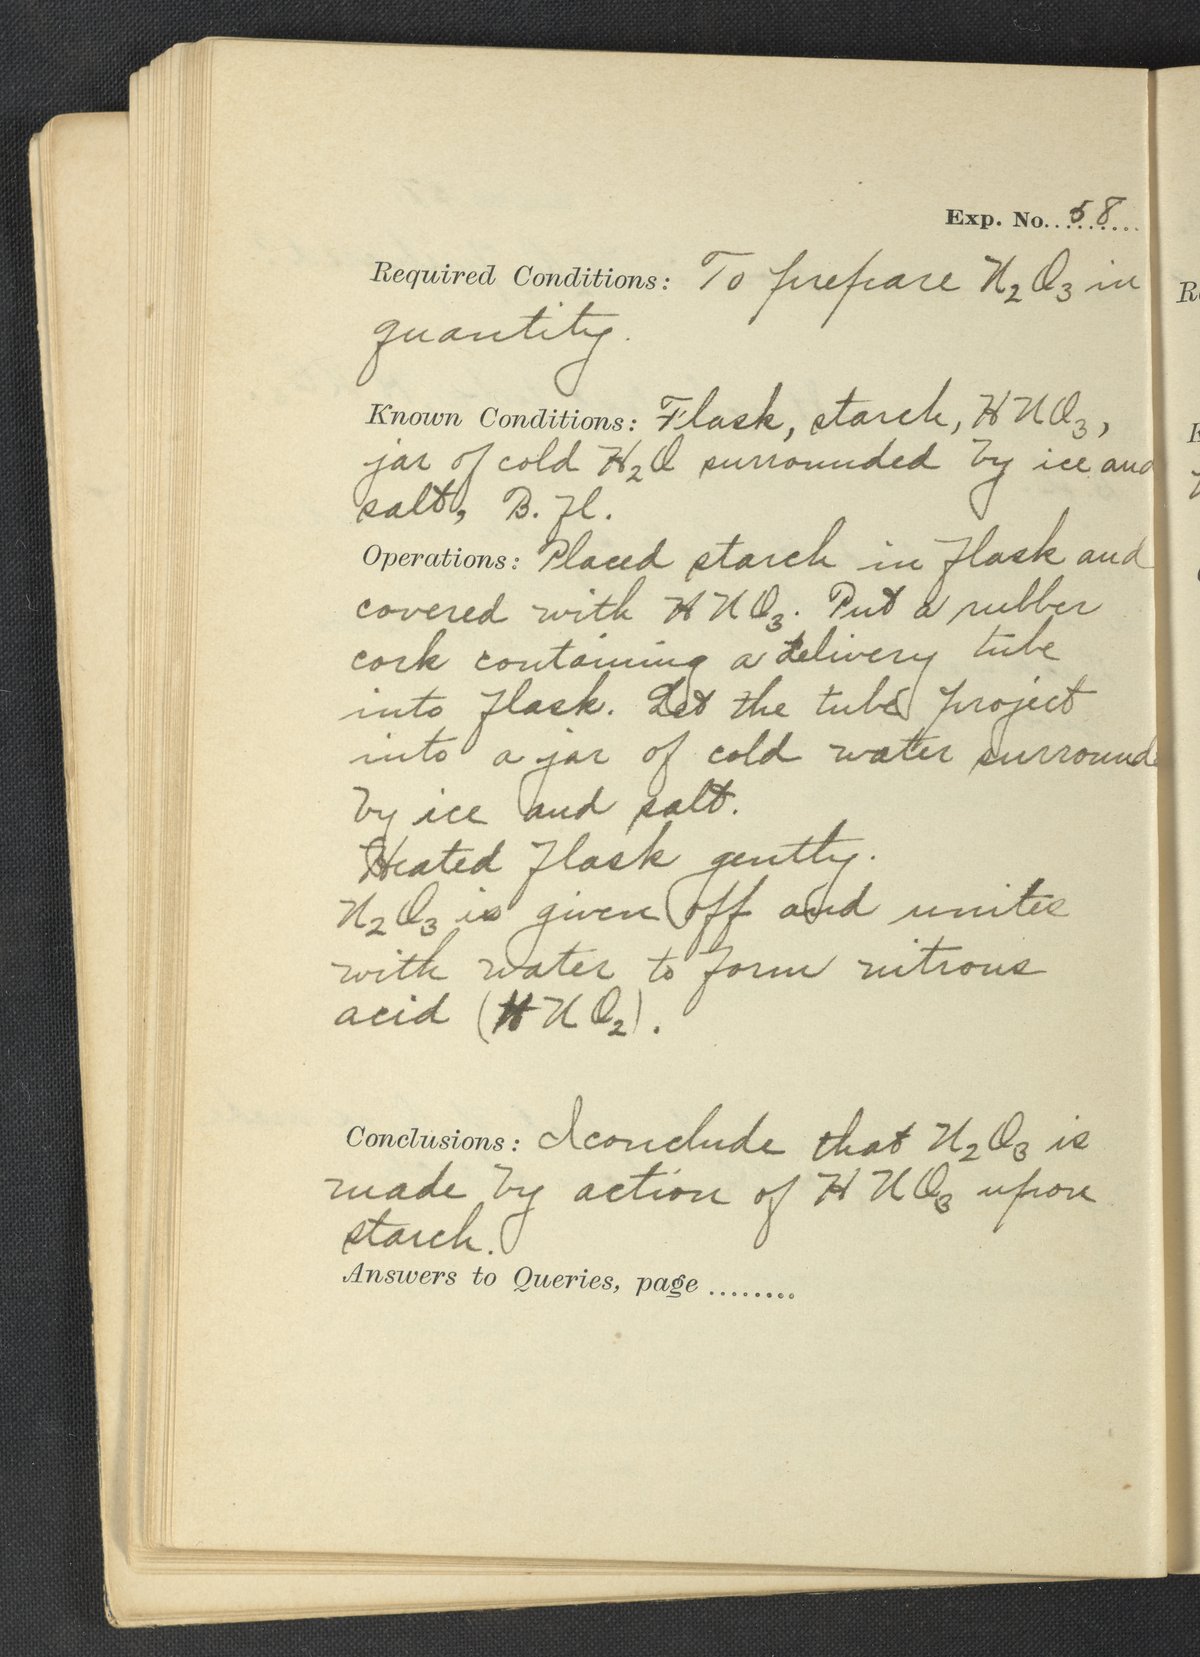 Exp. No. 58
Required Conditions: To prepare N2O3 in
quantity.
Known Conditions: Flask, starch, HNO3,
jar of cold H2O surrounded by ice and
salt, B. Fl.
Operations: Placed starch in flask and
covered with HNO3. Put a rubber
cork containing a delivery tube
into flask. Let the tube project
into a jar of cold water surround
by ice and salt.
Heated flask gently.
N2O3 is given off and unites
with water to form nitrous
acid (HNO2).
Conclusions: I conclude that N2O3 is
made by action of HNO3 upon
starch.
Answers to Queries, page ........